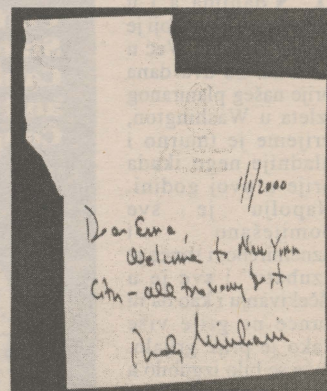 1/1/2000
Dear Ema,
Welcome to New York
City - all the very best
Rudy Giuliani